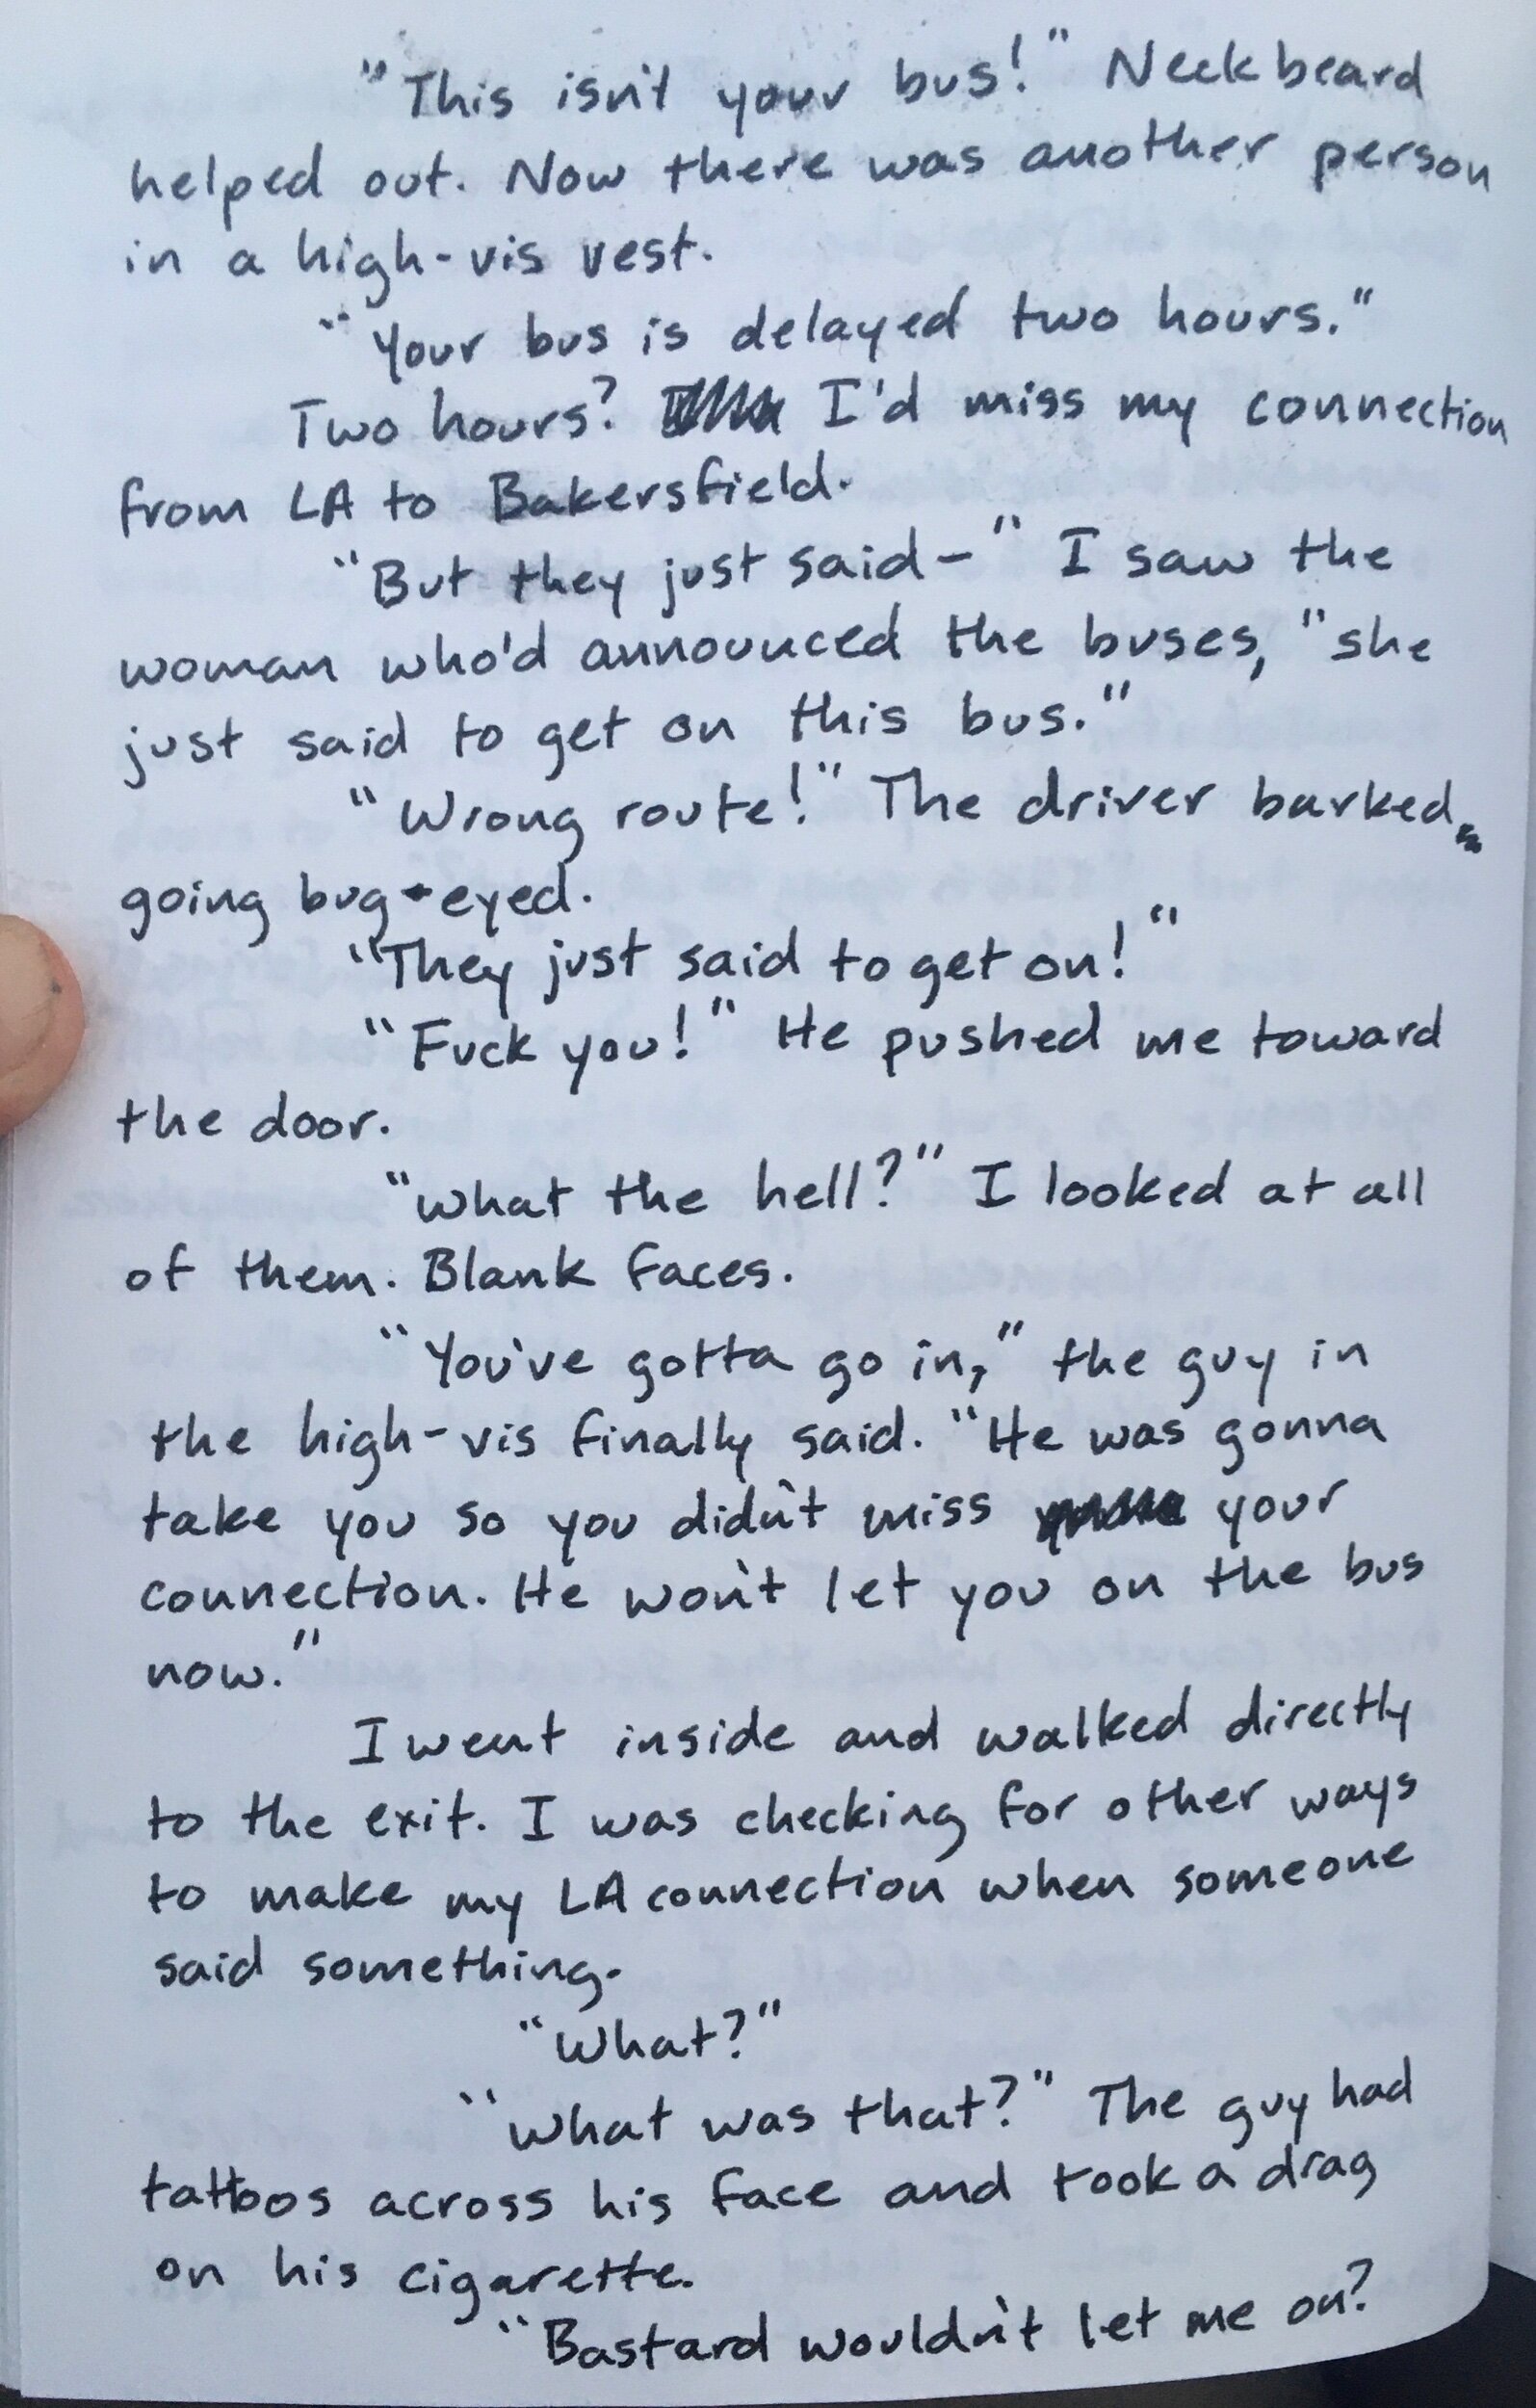 "This isn't your bus!" Neckbeard
helped out. Now there was another person
in a high-vis vest.
"Your bus is delayed two hours."
Two hours? I'd miss my connection
from LA to Bakersfield.
"But they just said-" I saw the
woman who'd announced the buses, "she
just said to get on this bus."
"Wrong route!" The driver barked,
going bug-eyed.
"They just said to get on!"
"Fuck you!" He pushed me toward
the door.
"What the hell?" I looked at all
of them. Blank faces.
"You've gotta go in," the guy in
the high-vis finally said. "He was gonna
take you so you didn't miss your
connection. He won't let you on the bus
now."
I went inside and walked directly
to the exit. I was checking for other ways
to make my LA connection when someone
said something.
"What?"
"What was that?" The guy had
tattoos across his face and took a drag
on his cigarette.
"Bastard wouldn't let me on?